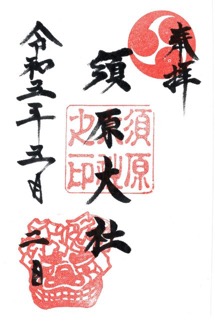 奉拝
須原大社
須原
之印
令和五年五月
二日